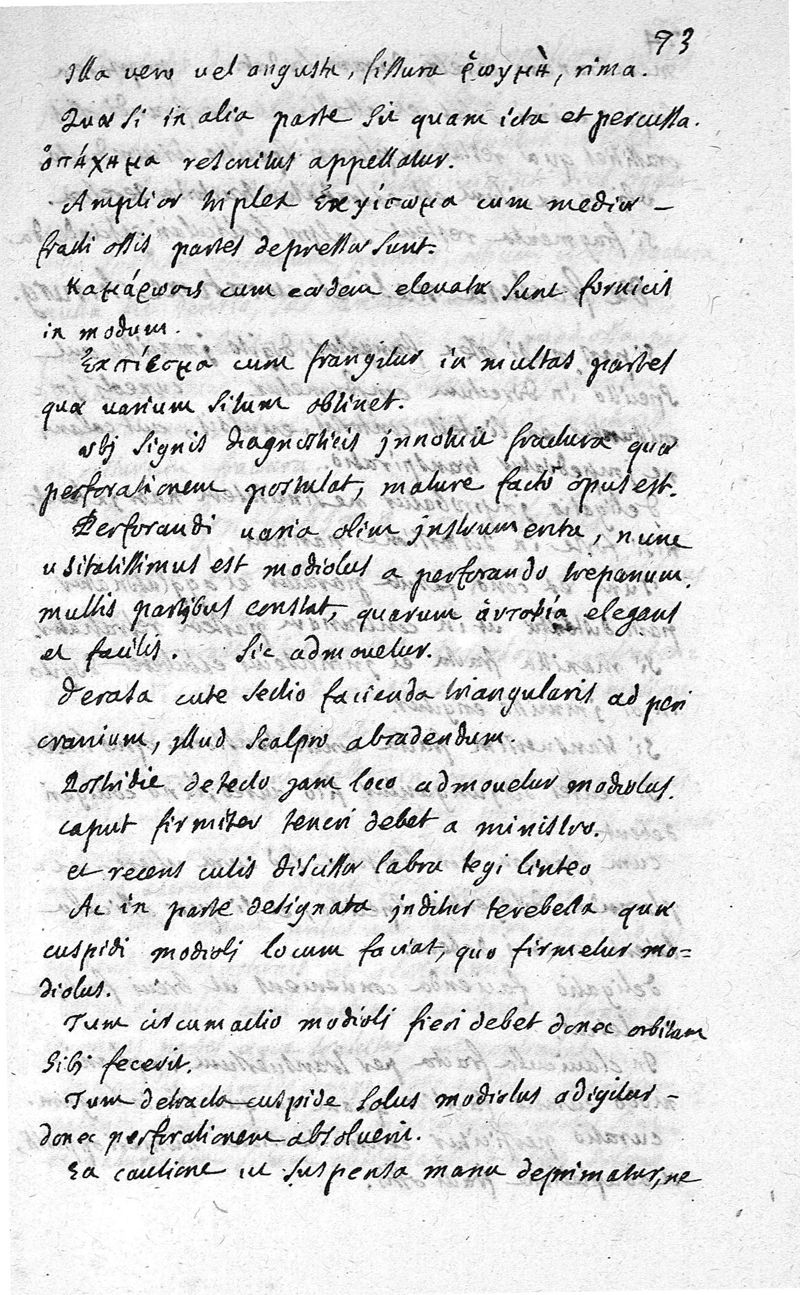 73
Illa vero vel angusta, fissura ῥωγμὴ, rima.
Quæ si in alia parte sit quam icta et percussa.
ἀπήχημα resonitus appellatur.
Amplior triplex cum mediæ –
fracti ossis partes depressæ sunt.
Καμάρωσις cum eædem elevatæ sunt fornicis
in modum.
Ἐκπίεσμα cum frangitur in multas partes
quæ varium situm obtinet.
Ubj signis diagnosticis jnnotuit fractura quæ
perforationem postulat, mature facto opus est.
Perforandi varia olim jnstrumenta, nunc
usitatissimus est modiolus a perforando trepanum.
multis partibus constat, quarum ἀυτοψία elegans
et facilis. Sic admovetur.
Derasa cute sectio facienda triangularis ad peri
cranium, jllud scalpro abradendum.
Postridie detecto jam loco admovetur modiolus.
caput firmiter teneri debet a ministro.
et recens cutis discissæ labra tegi linteo
Ac in parte designata jnditur terebella quæ
cuspidi modioli locum faciat, quo firmetur mo=
diolus.
Tum circumactio modioli fieri debet donec orbitam
sibj fecerit.
Tum detracta cuspide solus modiolus adigitur –
donec perforationem absolverit.
Ea cautione ut suspensa manu deprimatur, ne